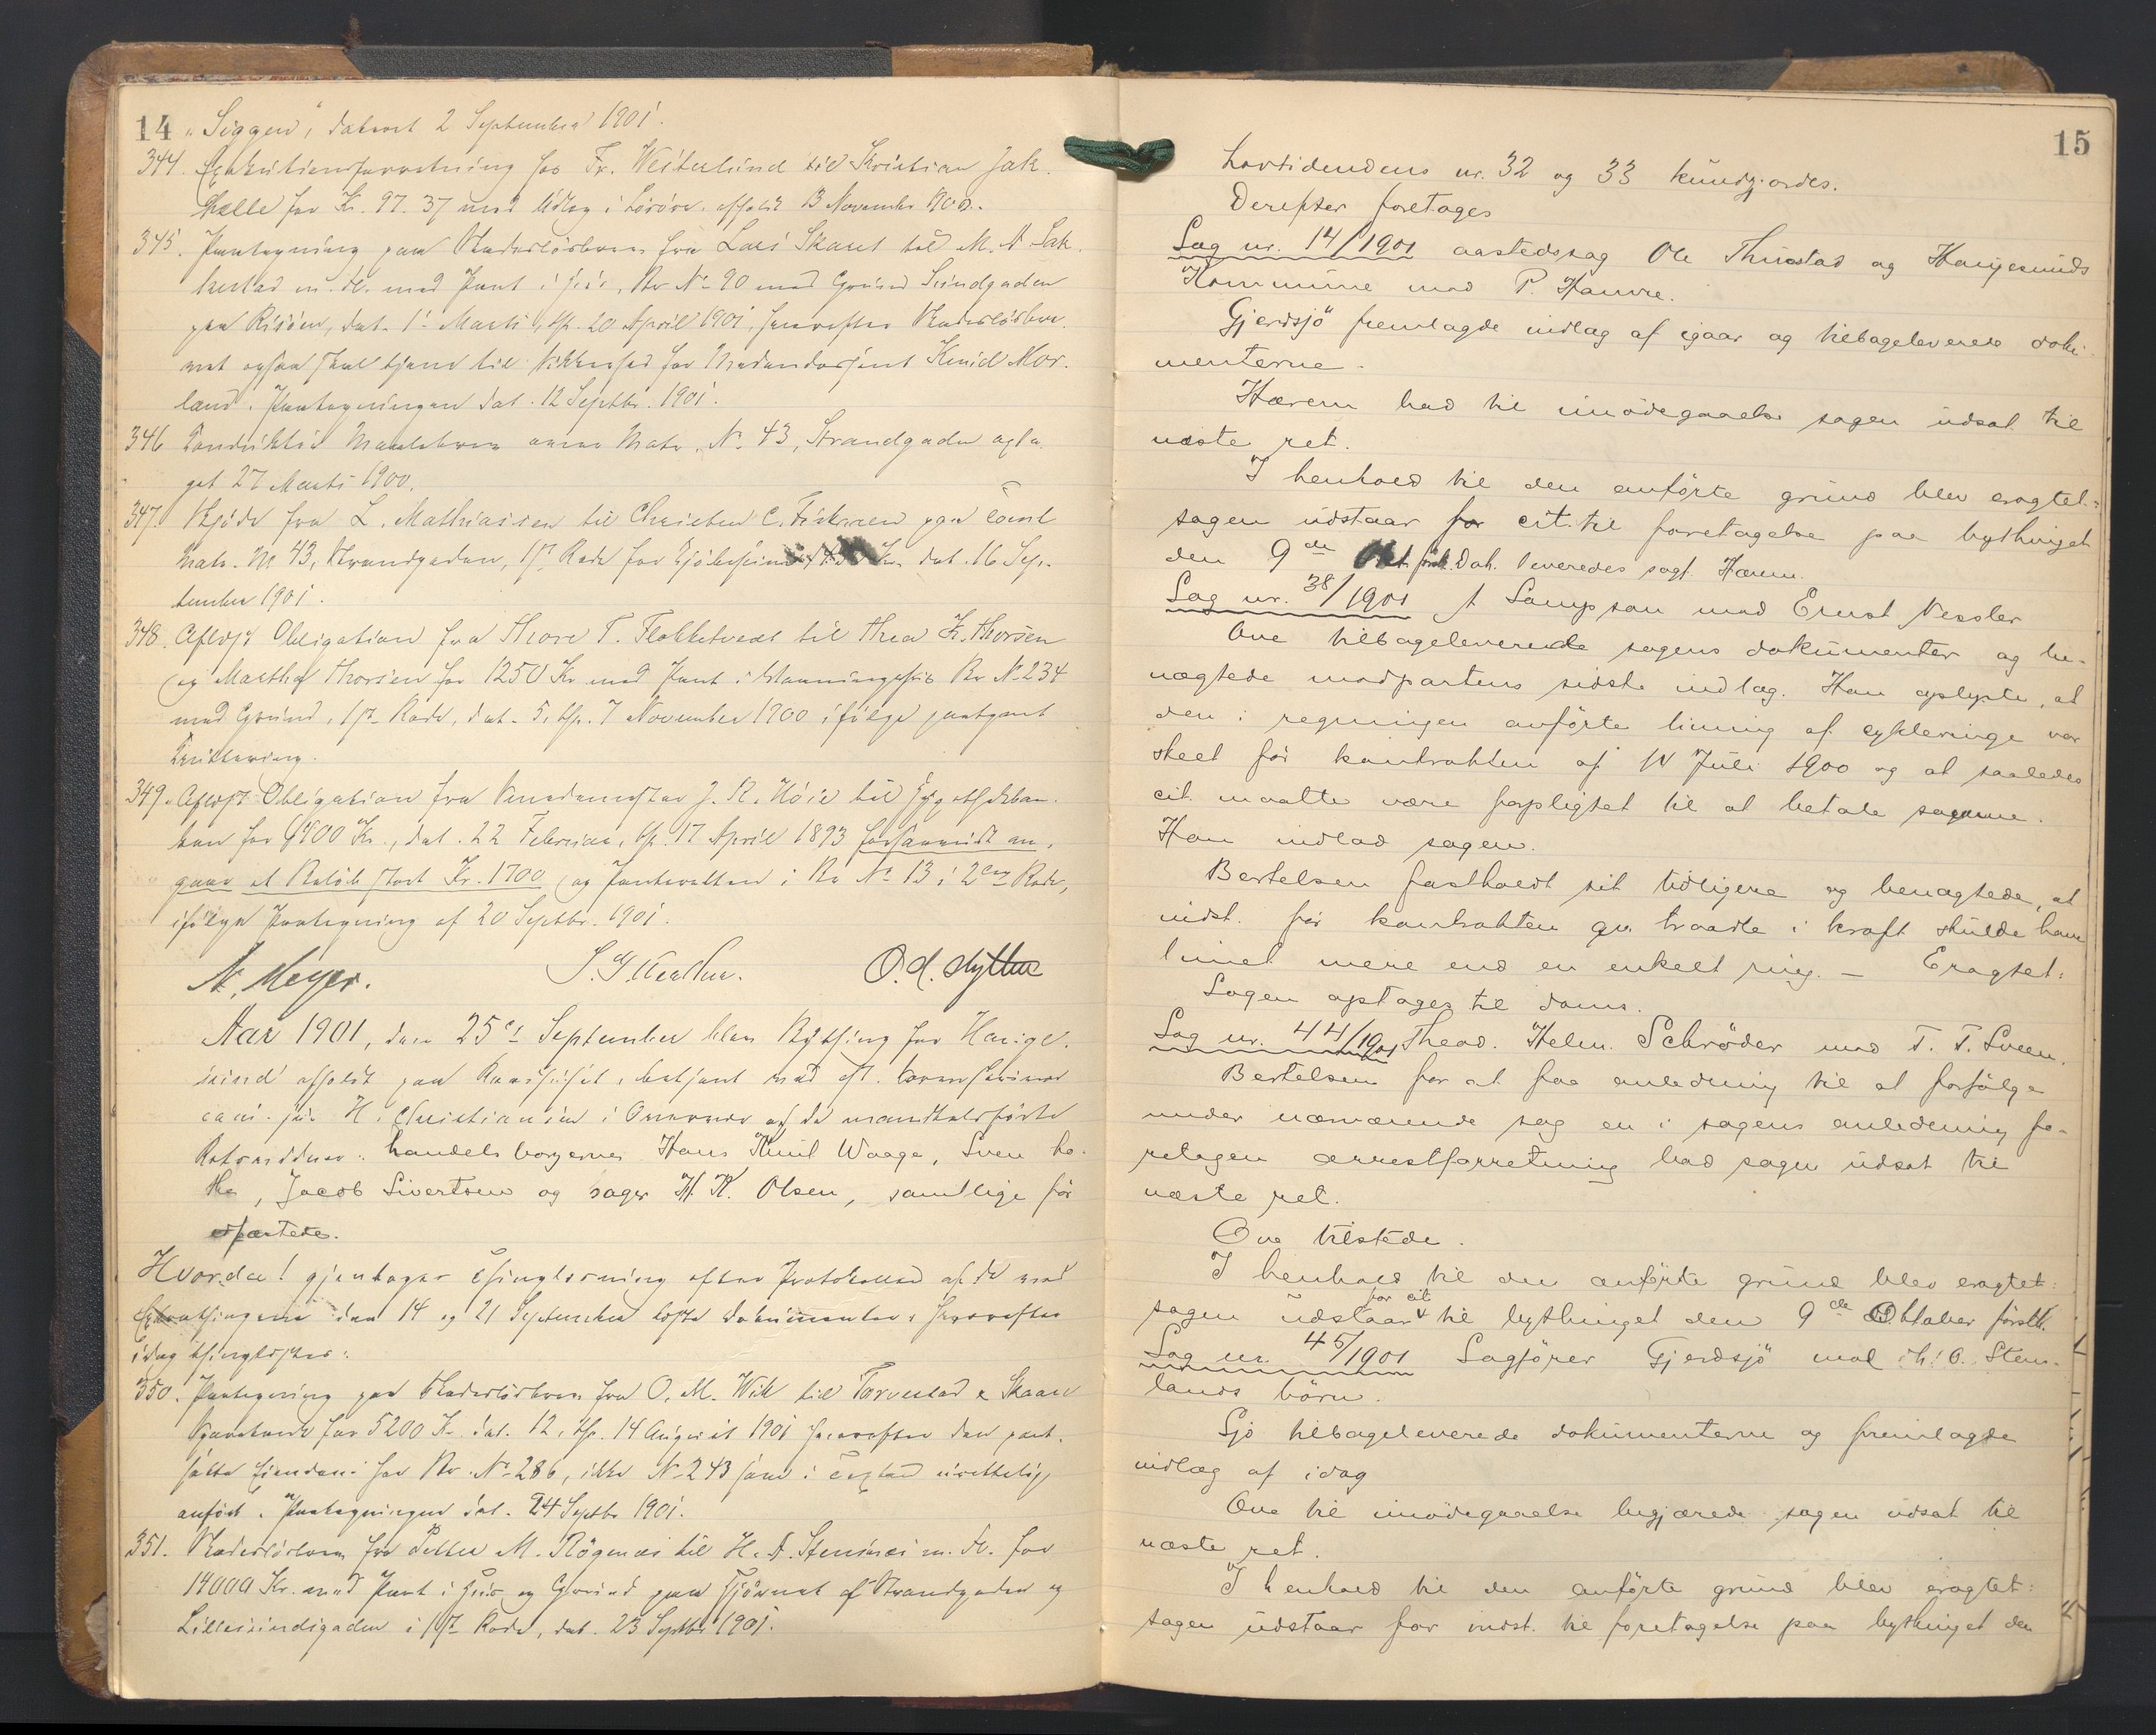 14 „Siggen“, dateret 2 September 1901.
344. Exekutionsforretning for Fr. Westerlund til Kristian Jak.
Kr. 97.37 med Udlæg i Løsøre. afholdt 13 November 1900.
345. Paategning paa Skadesløsbrev fra Lars Skaret til M. A. Sak-
kestad m. fl. med Pant i Hus, Br No 90 med Grund Sundgaden
paa Risøen, dat. 1 Marts, thl. 20 April 1901, hvorefter Skadesløsbre-
vet ogsaa skal tjene til Sikkerhed for Knud Mor-
land. Paategningen dat. 12 Septbr. 1901.
346 Matr. No 43, Strandgaden
get 27 Marts 1900.
347. Skjøde fra L. Mathiassen til Christen C. paa Tomt
Matr. No 43, Strandgaden, 1ste Rode for Kjøbesum Kr. dat. 16 Sep-
tember 1901.
348. Aflyst Obligation fra Thore T. Flokketvedt til Thea K. Thorsen
og Martha Thorsen for 1250 Kr med Pant i Br No 234
med Grund, 1ste Rode, dat. 5, thl. 7 November 1900 ifølge paategnet
Kvittering.
349. Aflyst Obligation fra J. R. Høie til Hypothekban-
ken for Kr., dat. 22 Februar, thl. 17 April 1893 forsaavidt an-
gaar et Beløb stort Kr. 1700 og Panteretten i Br No 13 i 2den Rode,
ifølge Paategning af 20 Septbr. 1901.
N. Meyer.
Aar 1901, den 25de September blev Bything for Hauge-
sund afholdt paa Raadhuset, betjent ved cst.
cand. jur. H. Christiansen i Overvær af de mandtalsførte
Retsvidner: handelsborgerne Hans Knut Waage, Sven
Jacob Sivertsen og sager H. K. Olsen, samtlige før
edfæstede.
Hvorda! gjentages Thinglæsning efter Protokollen af de ved
Extrathingene den 14 og 21 September læste Dokumenter, hvorefter
idag thinglystes:
350. Paategning paa Skadesløsbrev fra O. M. Wik til Torvestad & Skaare
Sparebank for 5200 Kr. dat. 12, thl. 14 August 1901 hvorefter den pant-
satte Eiendom har Br. No 286, ikke No 243 som i Texten urettelig
anført. Paategningen dat. 24 Septbr 1901.
351. Skadesløsbrev fra Peder M. Røgenes til H. A. Stensnes m. fl. for
14000 Kr. med Pant i Hus og Grund paa Hjørnet af Strandgaden og
Lillesundsgaden i 1ste Rode, dat. 23 Septbr 1901.
15
Lovtidendens nr. 32 og 33 kundgjordes.
Derefter foretages
Sag nr. 14/1901 aastedssag Ole Thuestad og Haugesunds
Kommune mod P. Hauvre.
Gjerdsjö fremlagde indlæg af igaar og tilbageleverede doku-
menterne.
Hærem bad til imødegaaelse sagen udsat til
næste ret.
I henhold til den anførte grund blev eragtet:
sagen udstaar for cit. til foretagelse paa bythinget
den 9de Okt. førstk. Dok. leveredes sagf. Hærem.
Sag nr. 38/1901 A Sampson mod Ernst Nessler
Ove tilbageleverede sagens dokumenter og be-
nægtede modpartens sidste indlæg. Han oplyste, at
den i regningen anførte liming af cykleringe var
skeet før kontrakten af 14 Juli 1900 og at saaledes
cit. maatte være forpligtet til at betale samme.
Han indlod sagen.
Bertelsen fastholdt sit tidligere og benægtede, at
indst. før kontrakten qv. traadte i kraft skulde have
limet mere end en enkelt ring. — Eragtet:
Sagen optages til doms.
Sag nr. 44/1901 Theod. Helm. Schrøder mod T. T. Sveen.
Bertelsen for at faa anledning til at forfølge
under nærværende sag en i sagens anledning fo-
retagen arrestforretning bad sagen udsat til
næste ret.
Ove tilstede.
I henhold til den anførte grund blev eragtet:
sagen udstaar for cit til bythinget den 9de Oktober førstk.
Sag nr. 45/1901 Sagfører Gjerdsjö mod Th. O. Stens-
lands børn.
Sjö tilbageleverede dokumenterne og fremlagde
indlæg af idag
Ove til imødegaaelse begjærede sagen udsat til
næste ret.
I henhold til den anførte grund blev eragtet:
sagen udstaar for indst. til foretagelse paa bythinget den